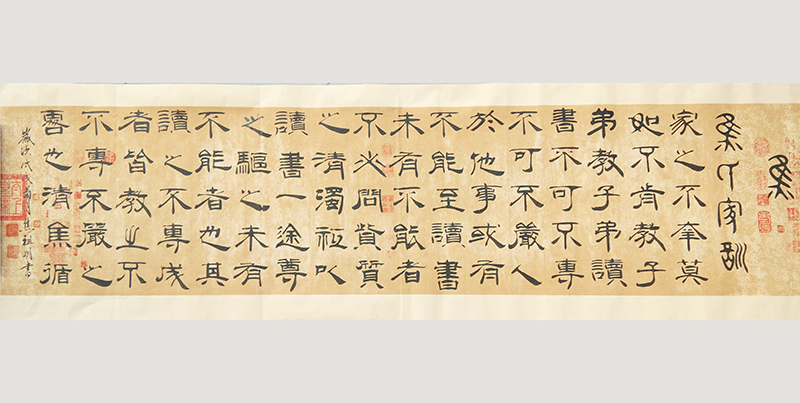 焦
焦氏家訓
家之不幸莫
如不肯教子
弟教子弟讀
書不可不專
不可不嚴人
於他事或有
不能至讀書
未有不能者
不必問資質
之清濁祗以
讀書一途尊
之驅之未有
不能者也其
讀之不專成
者皆教之不
不專不嚴之
害也清焦循
歲次戊 祖明書